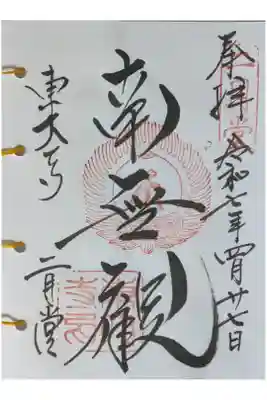 奉拝 令和七年四月廿七日
南無観
東大寺 二月堂